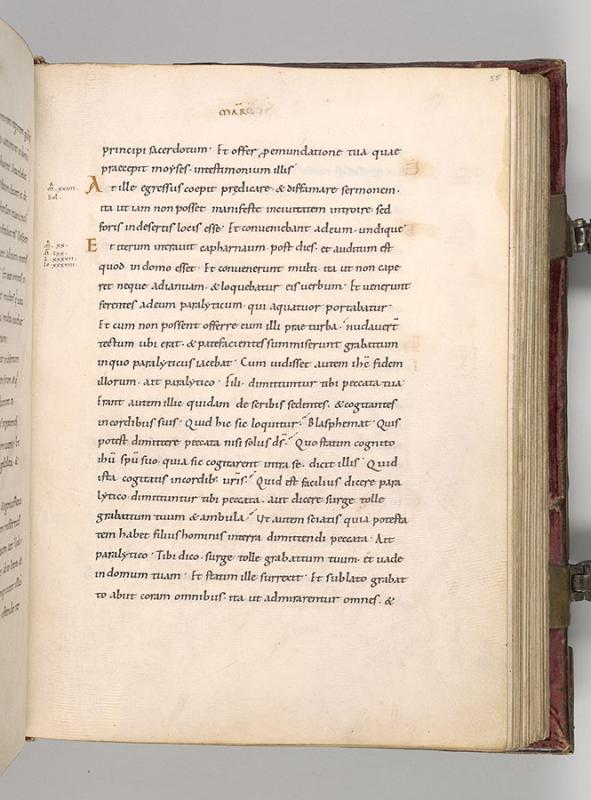 55
MARC
principi sacerdotum · Et offer pemundatione tua quae
praecepit moyses · intestimonium illis
At ille egressus coepit predicare · & diffamare sermonem ·
ita ut iam non posset manifeste inciuitatem introire sed
foris indesertis locis esse · Et conueniebant adeum · undique
Et iterum intrauit capharnaum post dies · et auditum est
quod indomo esset · Et conuenerunt multi · ita ut non cape
ret neque adianuam · & loquebatur eis uerbum · Et uenerunt
ferentes adeum paralyticum · qui aquatuor portabatur ·
Et cum non possent offerre eum illi prae turba · nudauer̄t
tectum ubi erat · & patefacientes summiserunt grabattum
inquo paralyticus iacebat · Cum uidisset autem ihc̄ fidem
illorum · ait paralytico · Fili · dimittuntur tibi peccata tua
Erant autem illic quidam de scribis sedentes · & cogitantes
incordibus suis · Quid hic sic loquitur · Blasphemat · Quis
potest dimittere peccata nisi solus ds̄ · Quo statim cognito
ihū spū suo · quia sic cogitarent intra se · dicit illis · Quid
ista cogitatis incordib; uris̄ · Quid est facilius dicere para
lytico dimittuntur tibi peccata · aut dicere surge tolle
grabattum tuum & ambula · Ut autem sciatis quia potesta
tem habet filius hominis interra dimittendi peccata · Ait
paralytico · Tibi dico · surge tolle grabattum tuum · et uade
indomum tuam · Et statim ille surrexit · Et sublato grabat
to abiit coram omnibus · ita ut admirarentur omnes · &